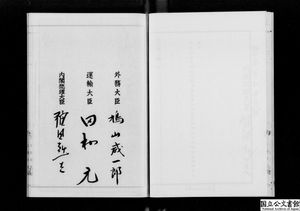 外務大臣 鳩山威一郎
運輸大臣 田村元
内閣総理大臣 福田赳夫
国立公文書館
National Archives of Japan